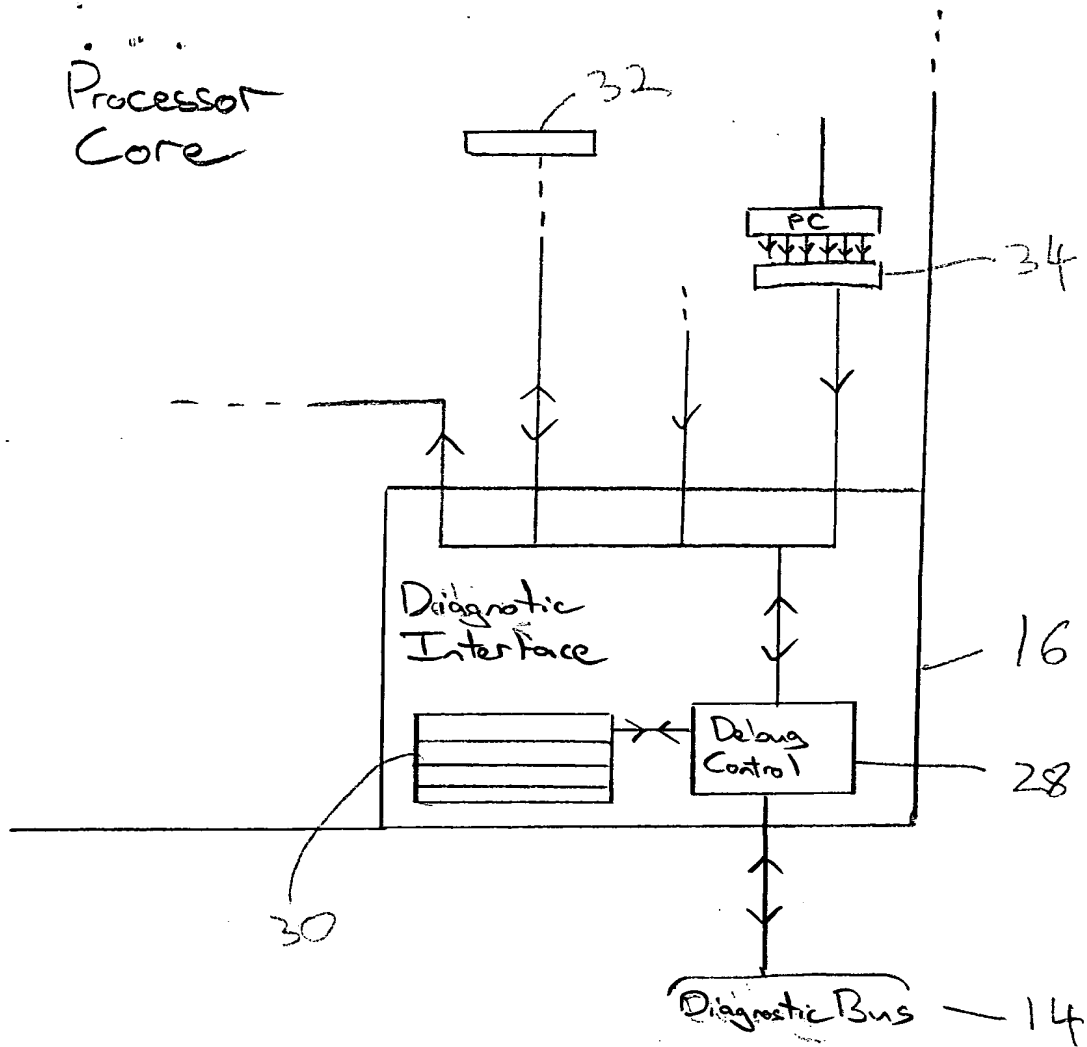 Processor
Core
32
PC
34
Diagnotic
Interface
16
Debug
Control
28
30
Diagnostic Bus
14